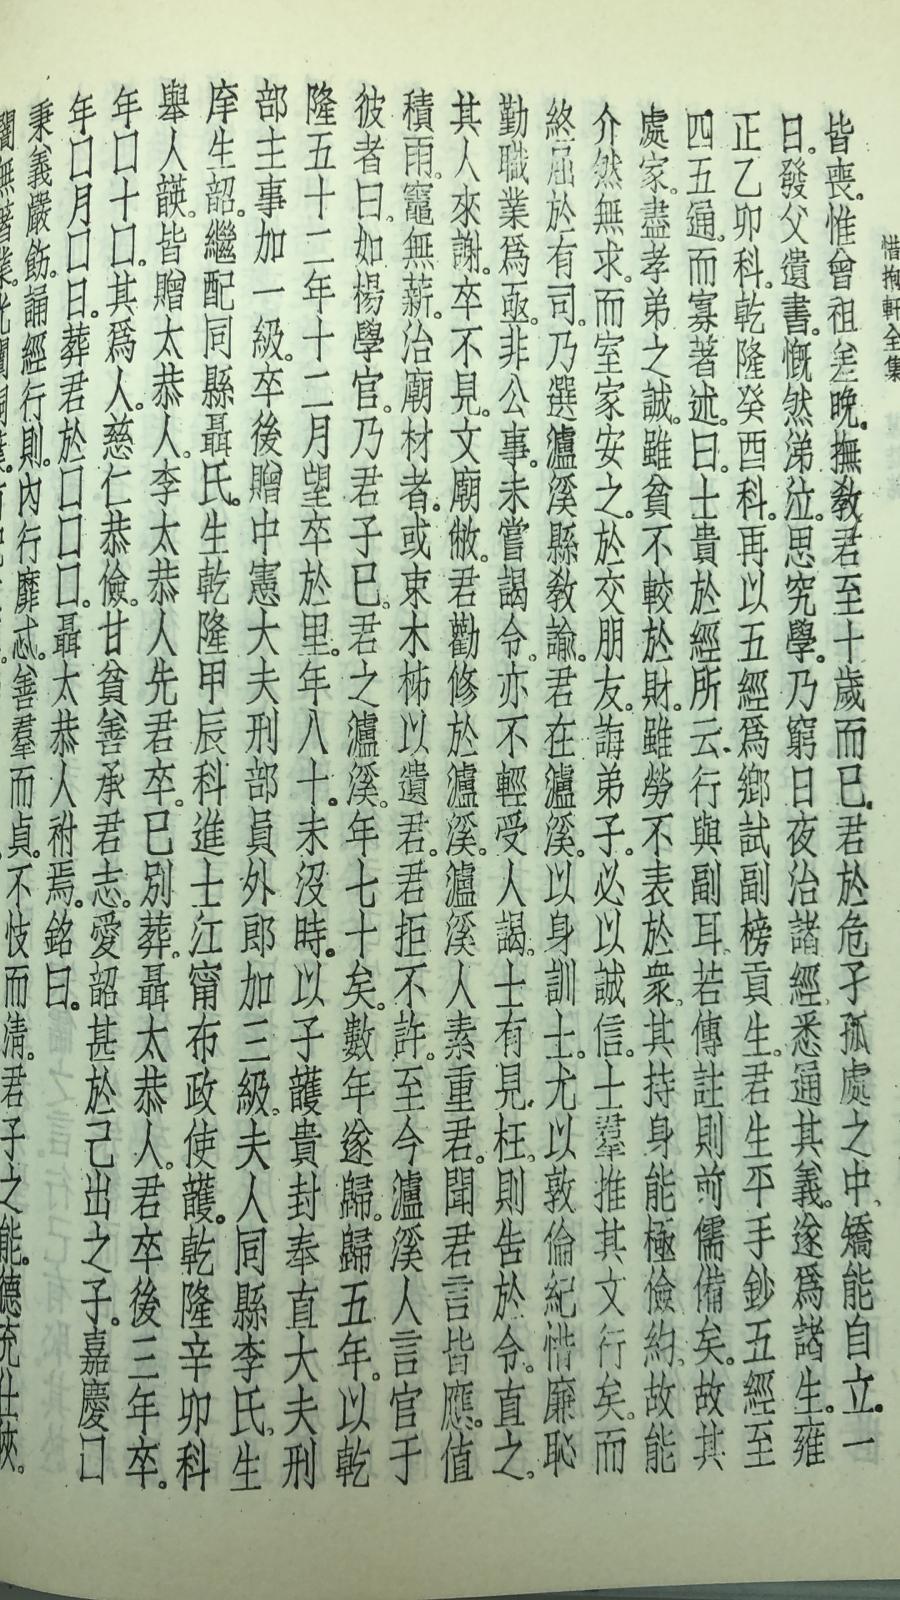 惜抱軒全集
皆喪。惟曾祖差晚。撫教君至十歲而已。君於危孑孤處之中、矯能自立。一
日。發父遺書。慨然涕泣。思究學。乃窮日夜治諸經、悉通其義。遂爲諸生。雍
正乙卯科。乾隆癸酉科。再以五經爲鄉試副榜貢生。君生平手鈔五經至
四五通。而寡著述。曰。士貴於經所云、行與副耳。若傳註則前儒備矣。故其
處家。盡孝弟之誠。雖貧不較於財。雖勞不表於衆。其持身能極儉約、故能
介然無求。而室家安之。於交朋友。誨弟子。必以誠信。士羣推其文行矣。而
終屈於有司。乃選瀘溪縣教諭。君在瀘溪。以身訓士。尤以敦倫紀惜廉恥
勤職業爲亟。非公事。未嘗謁令。亦不輕受人謁。士有見枉。則告於令。直之。
其人來謝。卒不見。文廟敝。君勸修於瀘溪。瀘溪人素重君。聞君言皆應。值
積雨。竈無薪。治廟材者。或束木柹以遺君。君拒不許。至今瀘溪人言官于
彼者曰。如楊學官。乃君子已。君之瀘溪。年七十矣。數年遂歸。歸五年。以乾
隆五十二年十二月望卒於里。年八十。未沒時。以子頀貴封奉直大夫刑
部主事加一級。卒後贈中憲大夫刑部員外郎加三級。夫人同縣李氏。生
庠生韶。繼配同縣聶氏。生乾隆甲辰科進士江甯布政使頀。乾隆辛卯科
舉人䪫。皆贈太恭人。李太恭人先君卒。已別葬。聶太恭人。君卒後三年卒。
年口十口。其爲人。慈仁恭儉。甘貧善承君志。愛韶甚於己出之子。嘉慶口
年口月口日。葬君於口口口。聶太恭人祔焉。銘曰。
秉義嚴飭。誦經行則。內行靡忒。善羣而貞。不忮而清。君子之能。德充仕